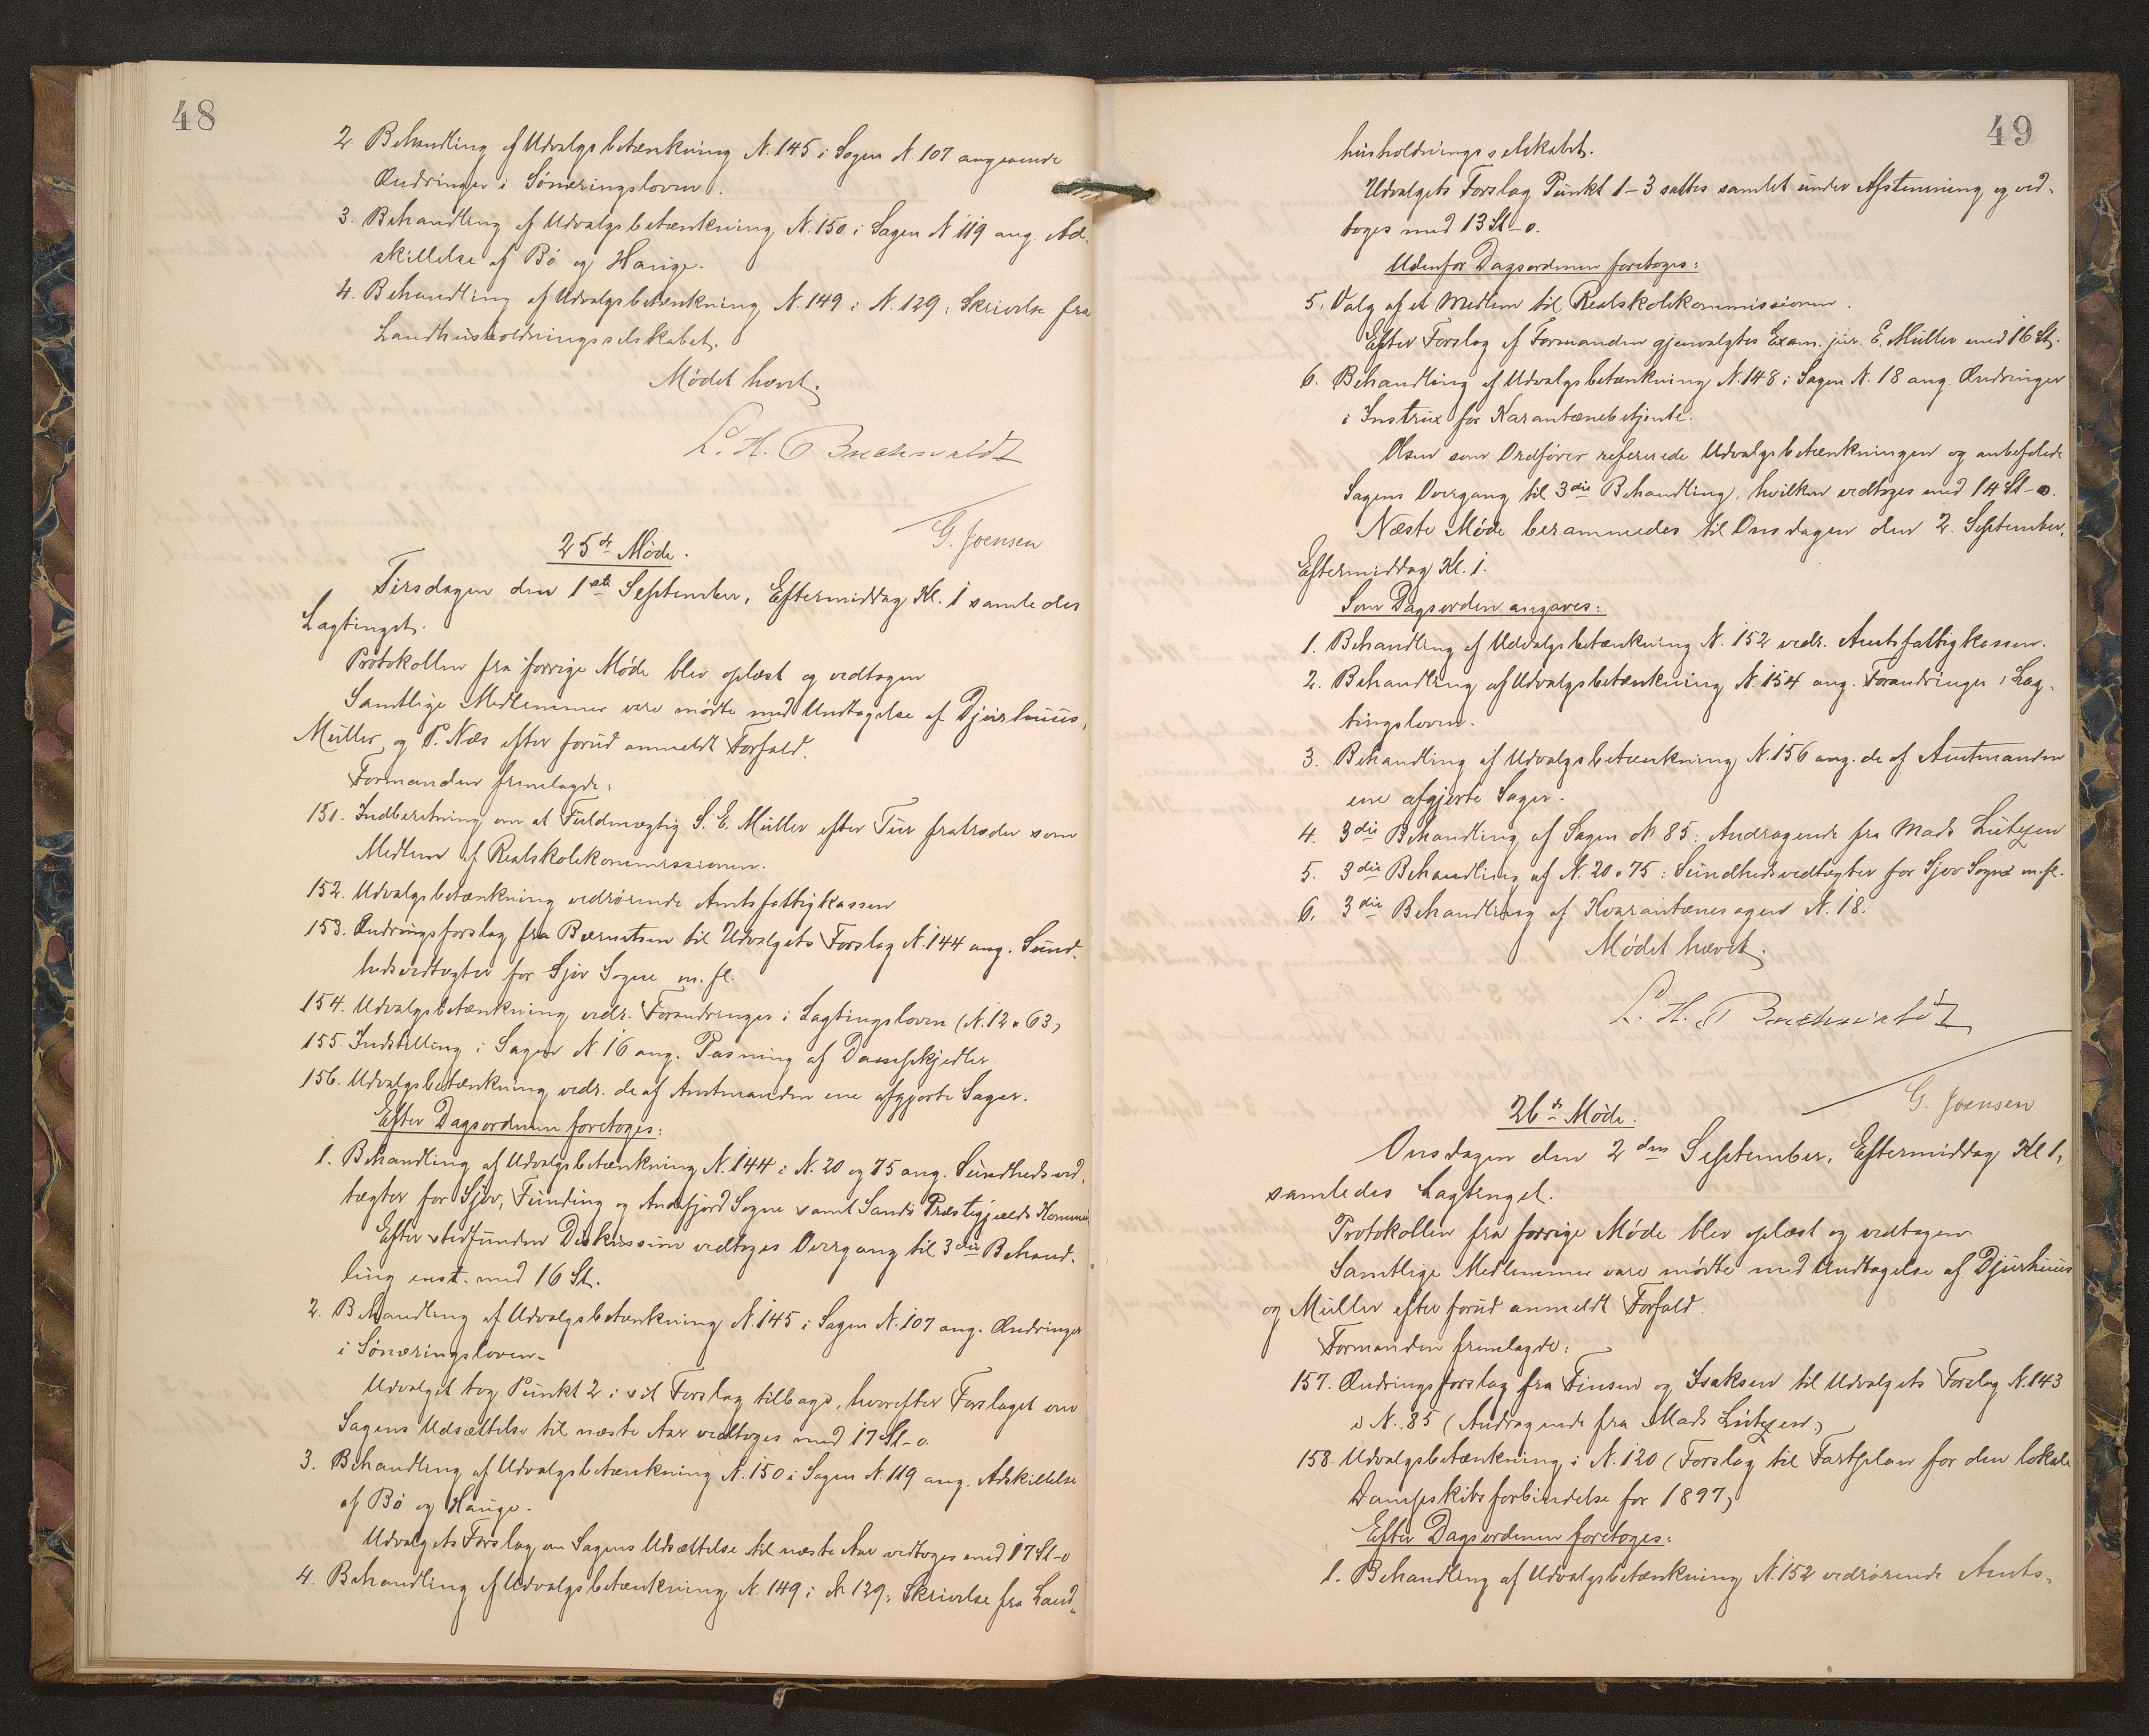 48
2. Behandling af Udvalgsbetænkning N. 145 i Sagen N. 107 angaaende
Ændringer i Sønæringsloven.
3. Behandling af Udvalgsbetænkning N. 150 i Sagen N 119 ang. Ad-
skillelse af Bø og Hauge.
4. Behandling af Udvalgsbetænkning N. 149 i N. 129: Skrivelse fra
Landhusholdningsselskabet.
Mødet hævet.
L. H. Buchwaldt
G. Joensen
25de Møde.
Tirsdagen den 1ste September, Eftermiddag Kl. 1 samledes
Lagtinget.
Protokollen fra forrige Møde blev oplæst og vedtagen
Samtlige Medlemmer vare mødte med Undtagelse af Djurhuus,
Müller, og P. Næs efter forud anmeldt Forfald.
Formanden fremlagde:
151. Indberetning om at Fuldmægtig S. E. Müller efter Tur fratræder som
Medlem af Realskolekommissionen.
152. Udvalgsbetænkning vedrørende Amtsfattigkassen
153. Ændringsforslag fra Bærentsen til Udvalgets Forslag N. 144 ang. Sund-
hedsvedtægter for Sjov Sogne m. fl.
154. Udvalgsbetænkning vedr. Forandringer i Lagtingsloven (N. 12 o 63)
155. Indstilling i Sagen N. 16 ang. Pasning af Dampkjedler.
156. Udvalgsbetænkning vedr. de af Amtmanden ene afgjorte Sager.
Efter Dagsordenen foretoges:
1. Behandling af Udvalgsbetænkning N. 144 i N. 20 og 75 ang. Sundhedsved-
tægter for Sjov, Funding og Andefjord Sogne samt Sandø Præstegjælds Kommune
Efter stedfunden Diskussion vedtoges Overgang til 3die Behand-
ling enst. med 16 St.
2. Behandling af Udvalgsbetænkning N. 145 i Sagen N. 107 ang. Ændringer
i Sønæringsloven.
Udvalget tog Punkt 2 i sit Forslag tilbage, hvorefter Forslaget om
Sagens Udsættelse til næste Aar vedtoges med 17 St-o.
3. Behandling af Udvalgsbetænkning N. 150 i Sagen N. 119 ang. Adskillelse
af Bø og Hauge.
Udvalgets Forslag om Sagens Udsættelse til næste Aar vedtoges med 17 St-o
4. Behandling af Udvalgsbetænkning N. 149 i N 129: Skrivelse fra Land-
49
husholdningsselskabet.
Udvalgets Forslag Punkt 1-3 sattes samlet under Afstemning og ved-
toges med 13 St-o.
Udenfor Dagsordenen foretoges:
5. Valg af et Medlem til Realskolekommissionen.
Efter Forslag af Formanden gjenvalgtes Exam. jur. E. Müller med 16 St.
6. Behandling af Udvalgsbetænkning N. 148 i Sagen N. 18 ang. Ændringer
i Instrux for Karantænebetjente.
Olsen som Ordfører refererede Udvalgsbetænkningen og anbefalede
Sagens Overgang til 3die Behandling, hvilken vedtoges med 14 St-o.
Næste Møde berammedes til Onsdagen den 2. September,
Eftermiddag Kl. 1.
Som Dagsorden angaves:
1. Behandling af Udvalgsbetænkning N. 152 vedr. Amtsfattigkassen.
2. Behandling af Udvalgsbetænkning N. 154 ang. Forandringer i Lag-
tingsloven.
3. Behandling af Udvalgsbetænkning N. 156 ang. de af Amtmanden
ene afgjorte Sager.
4. 3die Behandling af Sagen N 85: Andragende fra Mads Lützen
5. 3die Behandling af N. 20 o 75: Sundhedsvedtægter for Sjov Sogne m. fl.
6. 3die Behandling af Kvarantænesagen N. 18.
Mødet hævet.
L. H. Buchwaldt
G. Joensen
26de Møde.
Onsdagen den 2den September, Eftermiddag Kl 1,
samledes Lagtinget.
Protokollen fra forrige Møde blev oplæst og vedtagen
Samtlige Medlemmer vare mødte med Undtagelse af Djurhuus
og Müller efter forud anmeldt Forfald.
Formanden fremlagde:
157. Ændringsforslag fra Finsen og Isaksen til Udvalgets Forslag N. 143
i N. 85 (Andragende fra Mads Lützen)
158. Udvalgsbetænkning i N. 120 (Forslag til Fartplan for den lokale
Dampskibsforbindelse for 1897)
Efter Dagsordenen foretoges:
1. Behandling af Udvalgsbetænkning N. 152 vedrørende Amts-